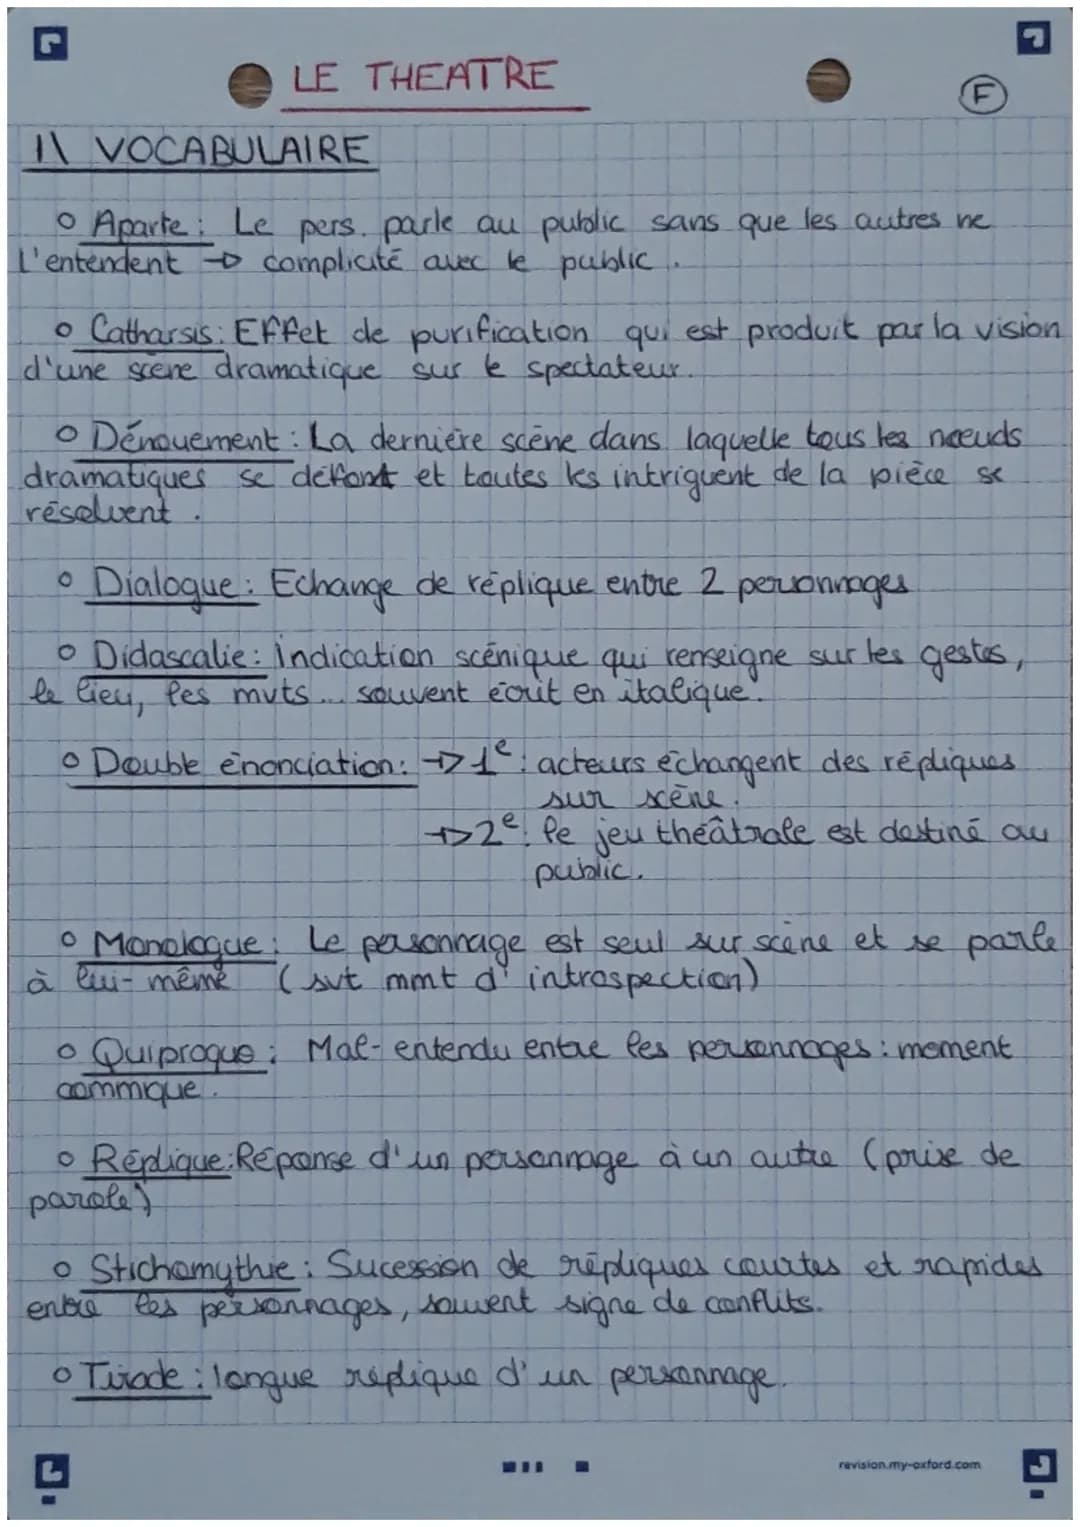 LE THEATRE
F
1\ VOCABULAIRE
o Aparte : Le pers. parle au public sans que les autres ne
l'entendent → complicité avec le public.
o Catharsis : Effet de purification qui est produit par la vision
d'une scène dramatique sur le spectateur.
o Dénouement : La dernière scène dans laquelle tous les nœuds
dramatiques se défont et toutes les intriguent de la pièce se
résolvent.
o Dialogue : Echange de réplique entre 2 personnages
o Didascalie : indication scénique qui renseigne sur les gestes,
le lieu, les muts... souvent écrit en italique.
o Double énonciation : → 1e : acteurs échangent des répliques
sur scène.
→ 2e : le jeu théâtrale est destiné au
public.
o Monologue : Le personnage est seul sur scène et se parle
à lui-même (svt mmt d'introspection)
o Quiproquo : Mal-entendu entre les personnages : moment
commique.
o Réplique : Réponse d'un personnage à un autre (prise de
parole)
o Stichomythie : Sucession de répliques courtes et rapides
entre les personnages, souvent signe de conflits.
o Tirade : longue réplique d'un personnage.
revision.my-oxford.com